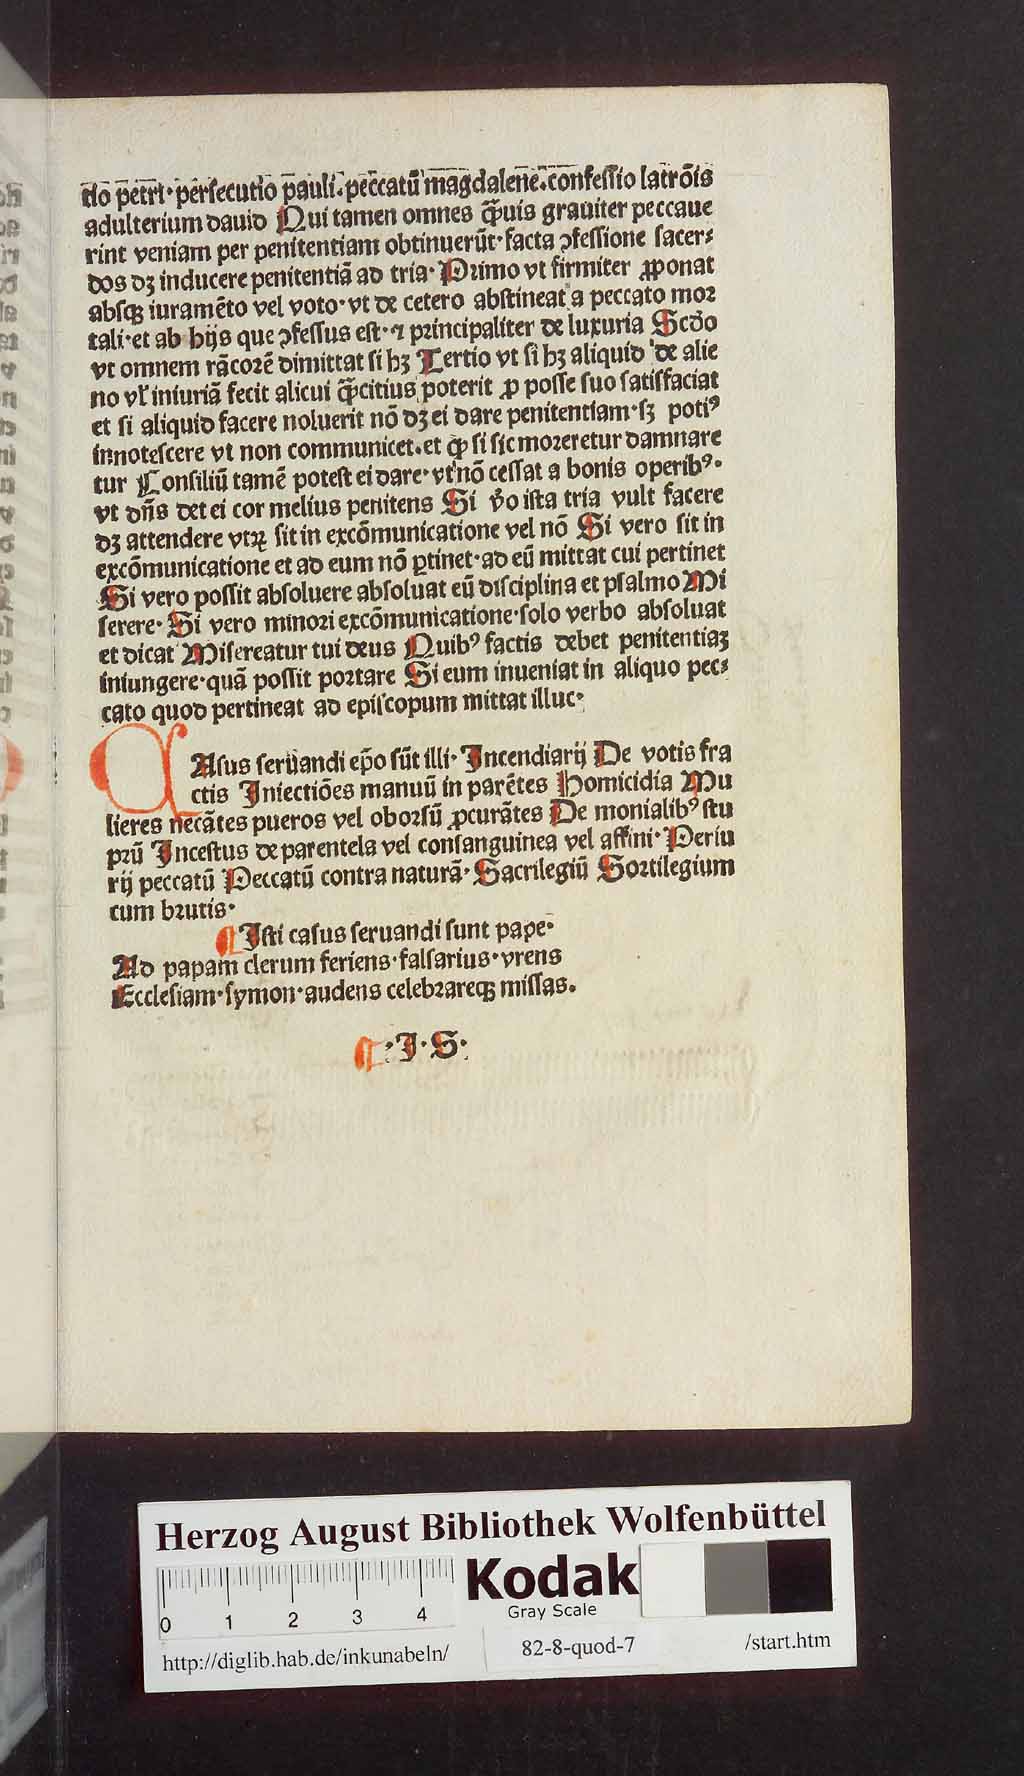 tio petri· persecutio pauli· peccatū magdalene· confessio latrōis
adulterium dauid Qui tamen omnes q̄̃uis grauiter peccaue
rint veniam per penitentiam obtinuerūt· facta ꝯfessione sacer⸗
dos dꝫ inducere penitentiā ad tria· Primo vt firmiter ꝓponat
absqꝫ iuramēto vel voto· vt de cetero abstineat a peccato moꝛ
tali· et ab hijs que ꝯfessus est· ⁊ pꝛincipaliter de luxuria Scd̄o
vt omnem rācoꝛē dimittat si hꝫ Tertio vt si hꝫ aliquid de alie
no vł iniuriā fecit alicui q̄̃citius poterit ꝓ posse suo satisfaciat
et si aliquid facere noluerit nō dꝫ ei dare penitentiam· sꝫ potiꝰ
innotescere vt non communicet· et ꝙ si sic moꝛeretur damnare
tur Consiliū tamē potest ei dare· vt nō cessat a bonis operibꝰ·
vt dn̄s det ei cor melius penitens Si v̄o ista tria vult facere
dꝫ attendere vtꝝ sit in excōmunicatione vel nō Si vero sit in
excōmunicatione et ad eum nō ꝑtinet· ad eū mittat cui pertinet
Si vero possit absoluere absoluat eū disciplina et psalmo Mi
serere· Si vero minoꝛi excōmunicatione· solo verbo absoluat
et dicat Misereatur tui deus Quibꝰ factis debet penitentiaꝫ
iniungere· quā possit poꝛtare Si eum inueniat in aliquo pec⸗
cato quod pertineat ad episcopum mittat illuc·
CAsus seruandi ep̄o sūt illi· Incendiarij De votis fra
ctis Iniectiōes manuū in parētes Homicidia Mu
lieres necātes pueros vel oboꝛsū ꝓcurātes De monialibꝰ stu
pꝛū Incestus de parentela vel consanguinea vel affini· Periu
rij peccatū Peccatū contra naturā· Sacrilegiū Soꝛtilegium
cum bꝛutis·
¶ Isti casus seruandi sunt pape·
Ad papam clerum feriens· falsarius· vrens
Ecclesiam· symon· audens celebꝛareqꝫ missas.
¶ ·I·S·
Herzog August Bibliothek Wolfenbüttel
Kodak
Gray Scale
0 1 2 3 4
http://diglib.hab.de/inkunabeln/ 82-8-quod-7 /start.htm